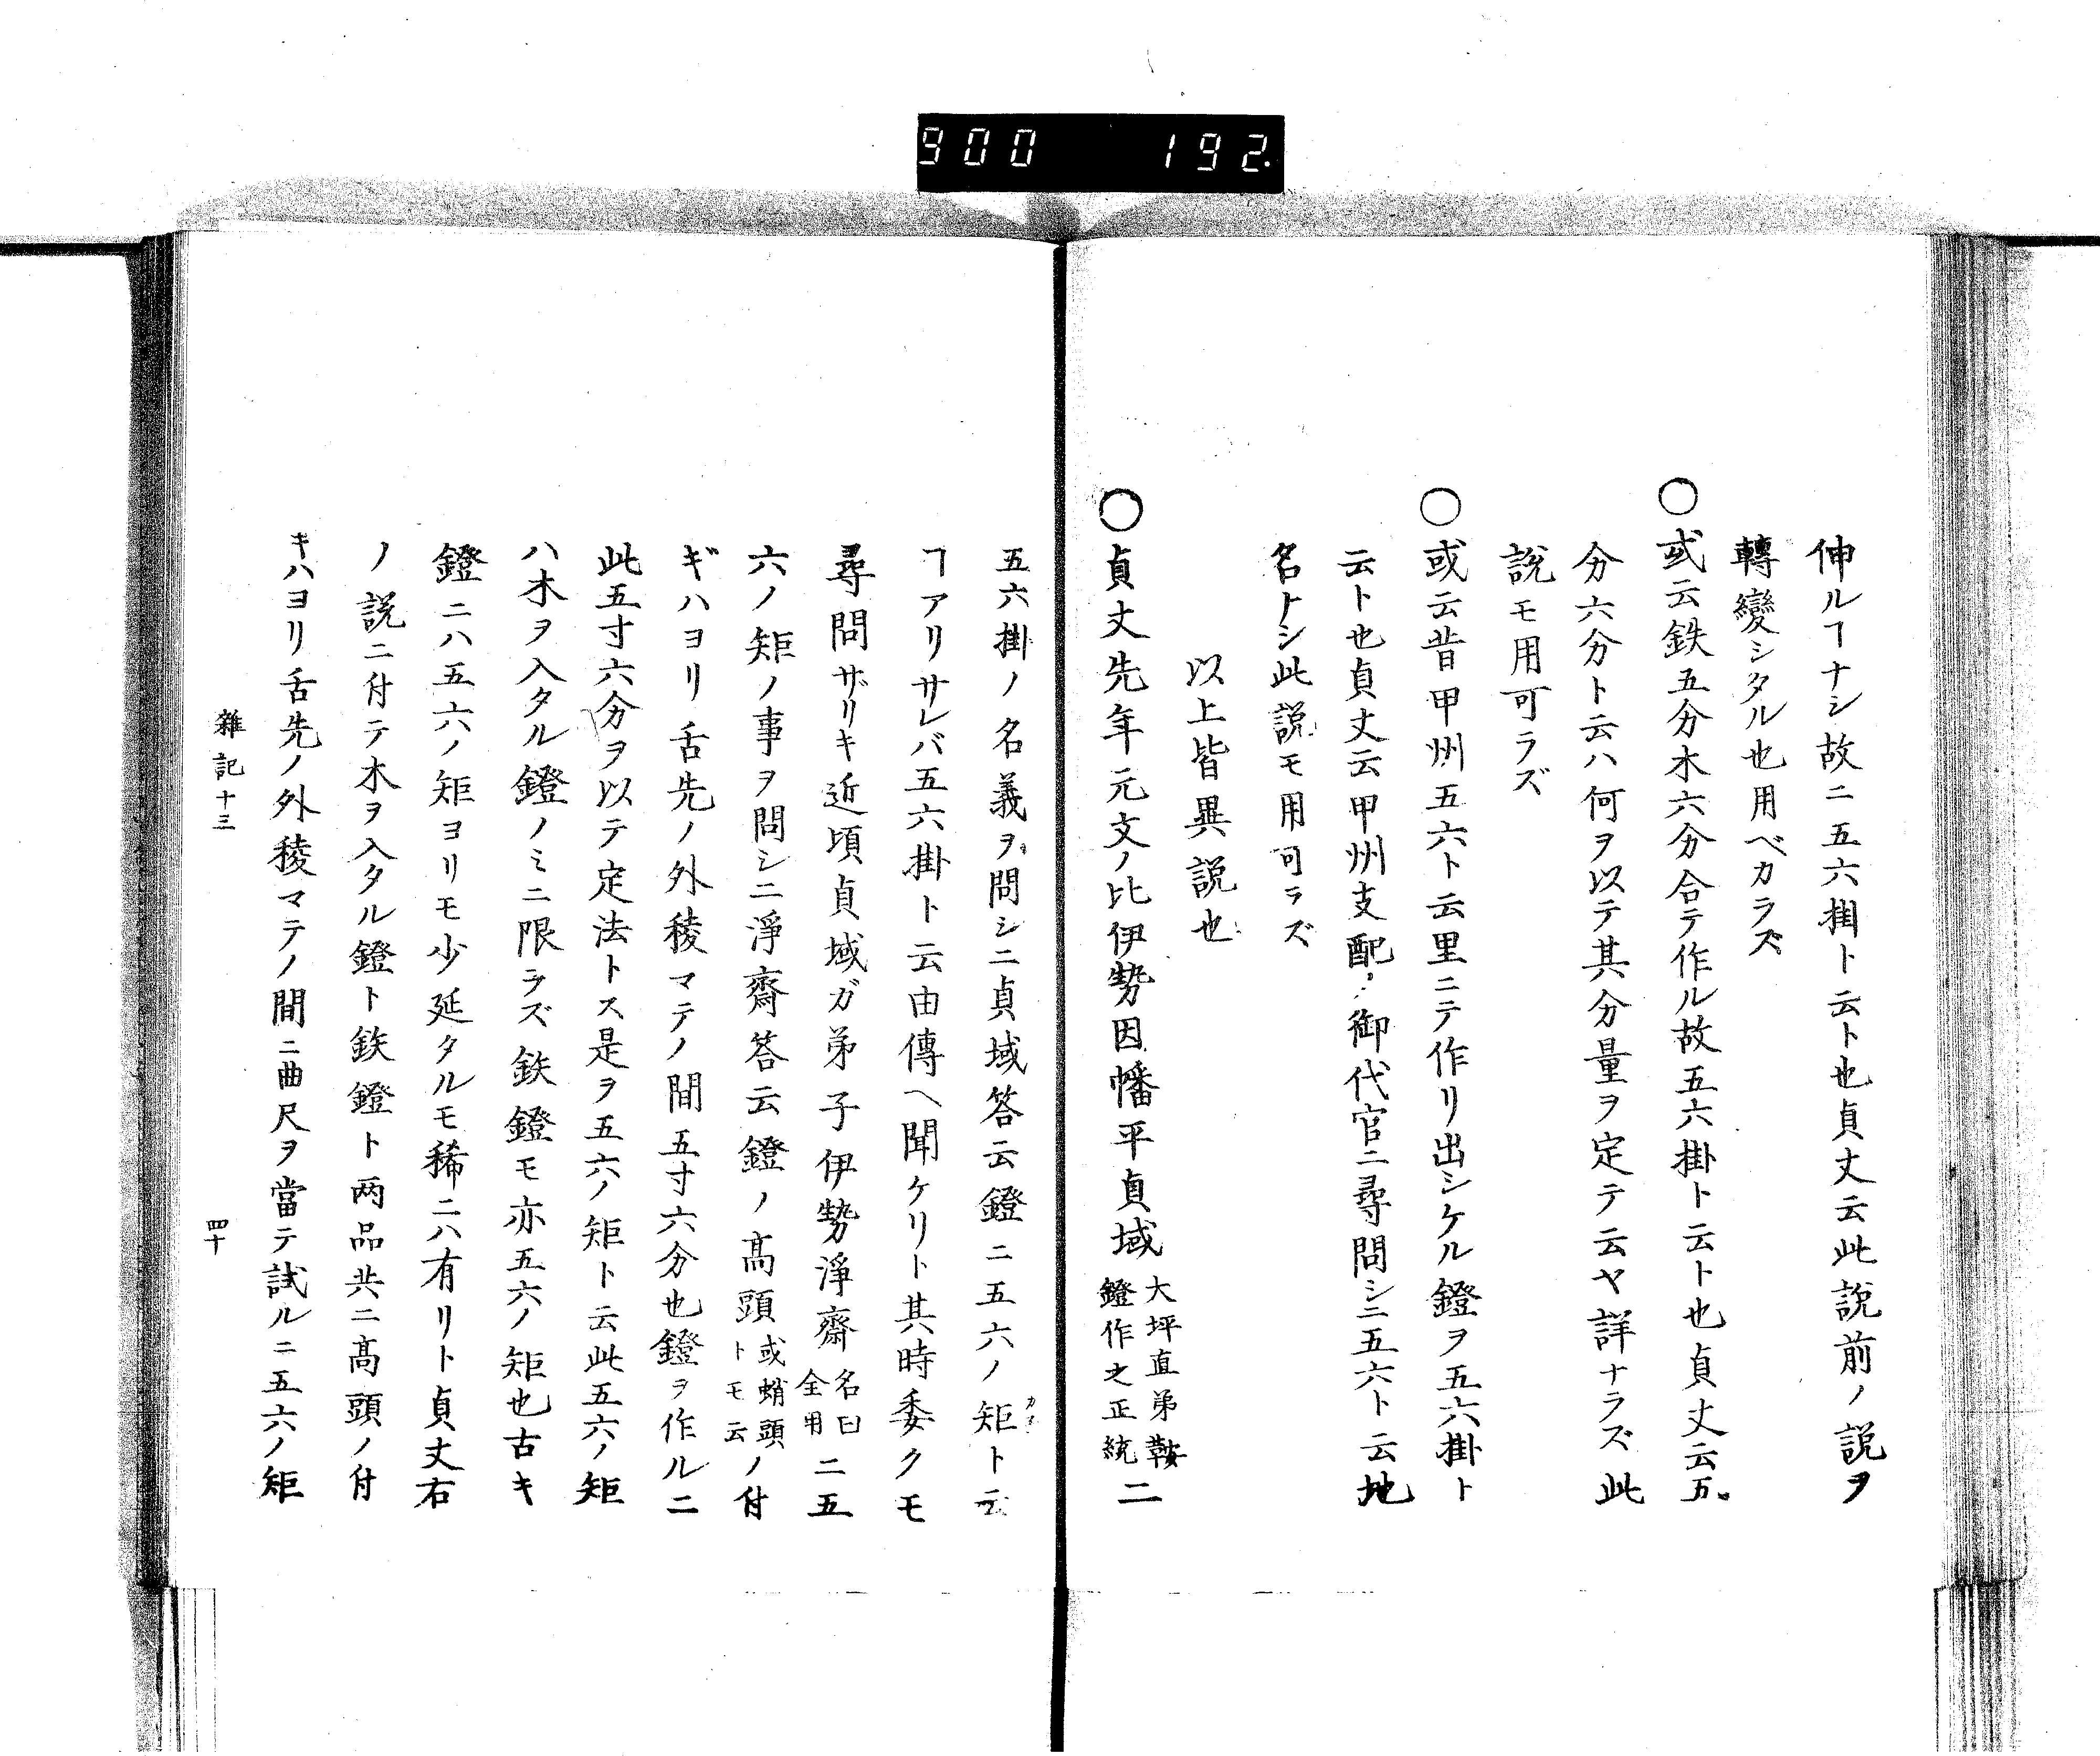 900 192.
伸ルヿナシ故ニ五六掛ト云ト也貞丈云此説前ノ説ヲ
轉變シタル也用ベカラズ
○或云鉄五分木六分合テ作ル故五六掛ト云ト也貞丈云五
分六分ト云ハ何ヲ以テ其分量ヲ定テ云ヤ詳ナラズ此
説モ用可ラズ
○或云昔甲州五六ト云里ニテ作リ出シケル鐙ヲ五六掛ト
云ト也貞丈云甲州支配ノ御代官ニ尋問シニ五六ト云地
名トシ此説モ用可ラズ
以上皆異説也
○貞丈先年元文ノ比伊勢因幡平貞域大坪直弟鞍鐙作之正統ニ
五六掛ノ名義ヲ問シニ貞域答云鐙ニ五六ノ矩ト云
ヿアリサレバ五六掛ト云由傳ヘ聞ケリト其時委クモ
尋問ザリキ近頃貞域ガ弟子伊勢淨齋名曰全用ニ五
六ノ矩ノ事ヲ問シニ淨齋答云鐙ノ高頭或蛸頭トモ云ノ付
ギハヨリ舌先ノ外稜マテノ間五寸六分也鐙ヲ作ルニ
此五寸六分ヲ以テ定法トス是ヲ五六ノ矩ト云此五六ノ矩
ハ木ヲ入タル鐙ノミニ限ラズ鉄鐙モ亦五六ノ矩也古キ
鐙ニハ五六ノ矩ヨリモ少延タルモ稀ニハ有リト貞丈右
ノ説ニ付テ木ヲ入タル鐙ト鉄鐙ト两品共ニ高頭ノ付
キハヨリ舌先ノ外稜マテノ間ニ曲尺ヲ當テ試ルニ五六ノ矩
雜記十三 四十